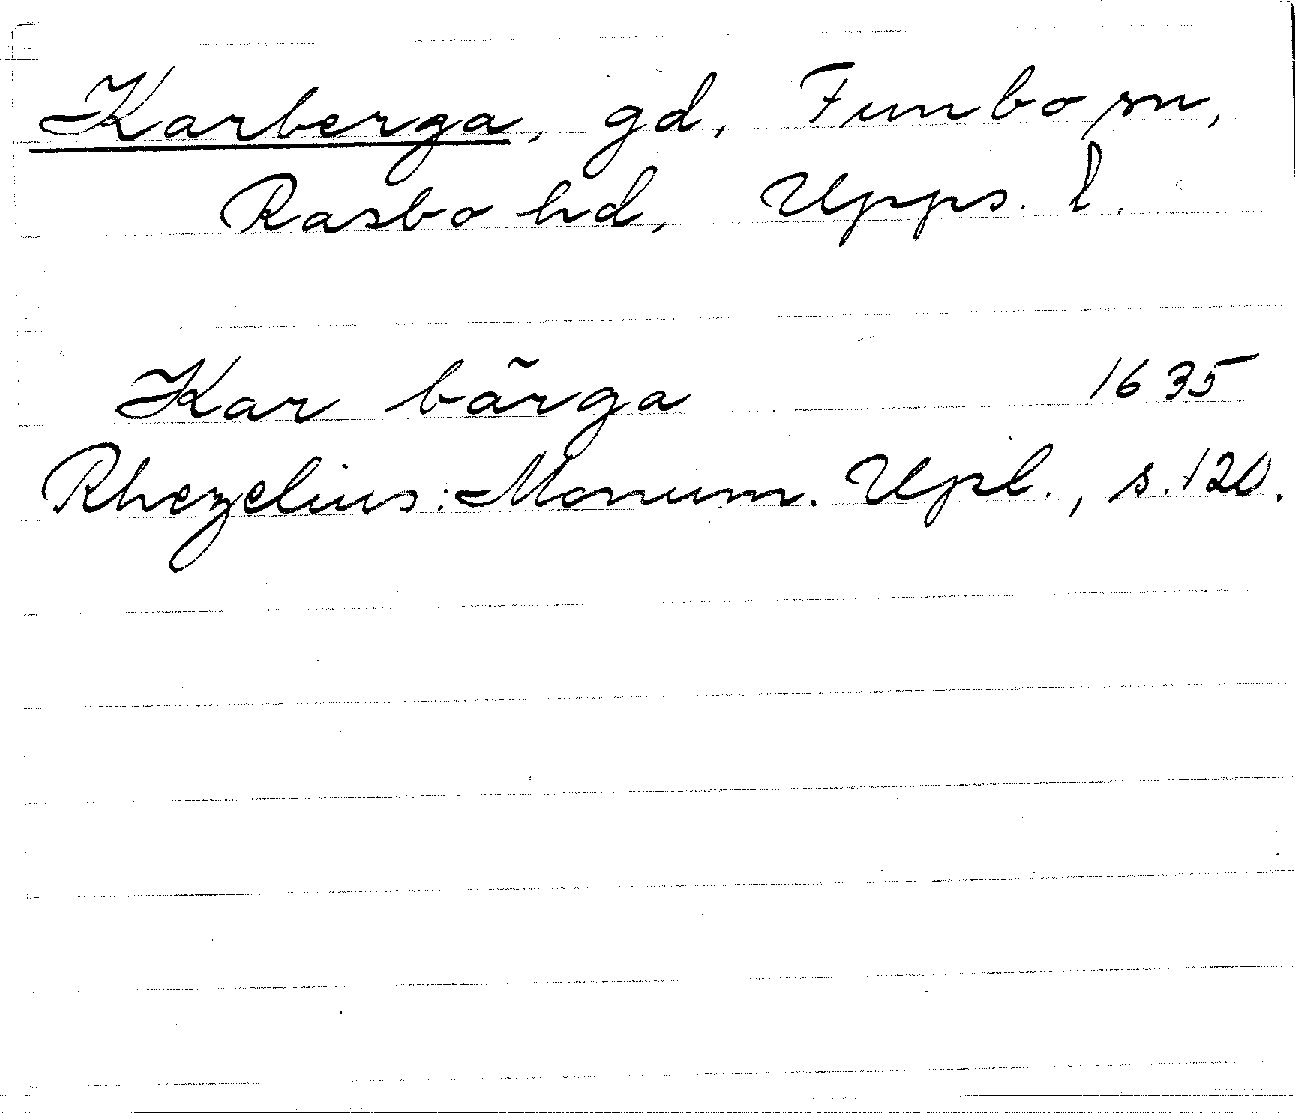 Karberga, gd, Funbo sn,
Rasbo hd, Upps. l.
Kar bärga 1635
Rhezelius: Monum. Upl., s. 120.